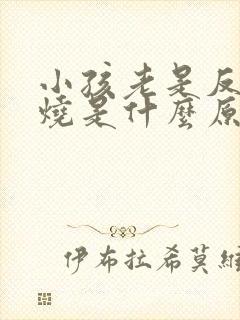 小孩老是反
燒是什麼原
伊布拉希莫維